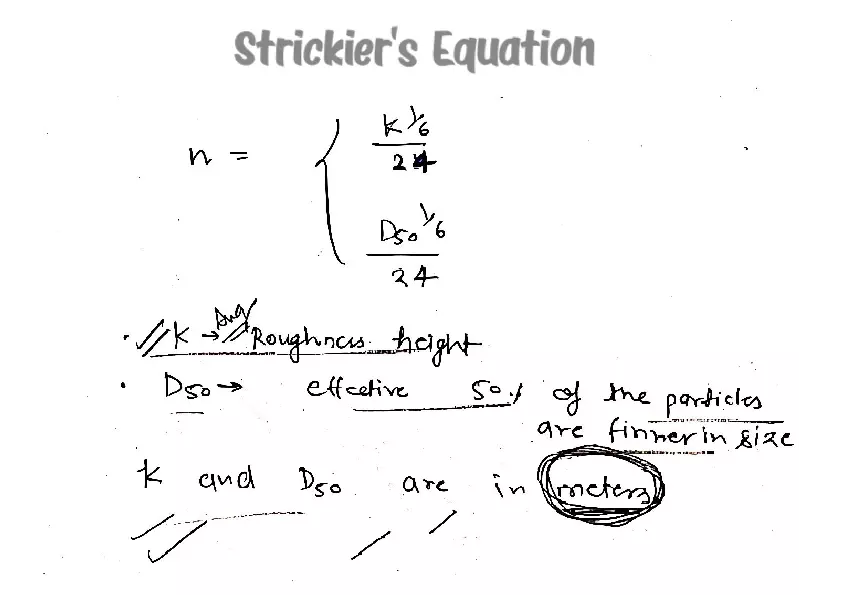 Strickier's Equation
n =
K^1/6
24
D50^1/6
24
• K → Avg Roughness height
• D50 → effective 50% of the particles
are finner in size
K and D50 are in meters